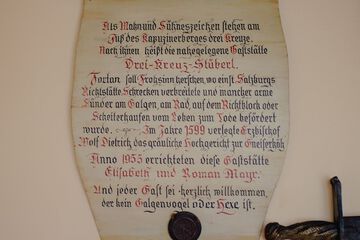 Als Mahnund Sühnezeichen stehen am
Fuß des Kapuzinerberges drei Kreuze.
Nach ihnen heißt die nahegelegene Gaststätte
Drei-Kreuz-Stüberl.
Fortan soll Frohsinn herrschen, wo einst Salzburgs
Richtstätte Schrecken verbreitete und mancher arme
Sünder am Galgen, am Rad, auf dem Richtblock oder
Scheiterhaufen vom Leben zum Tode befördert
wurde. Im Jahre 1599 verlegte Erzbischof
Wolf Dietrich das gräuliche Hochgericht zur Gneiserköhr.
Anno 1955 errichteten diese Gaststätte
Elisabeth und Roman Mayr.
Und jeder Gast sei herzlich willkommen,
der kein Galgenvogel oder Hexe ist.